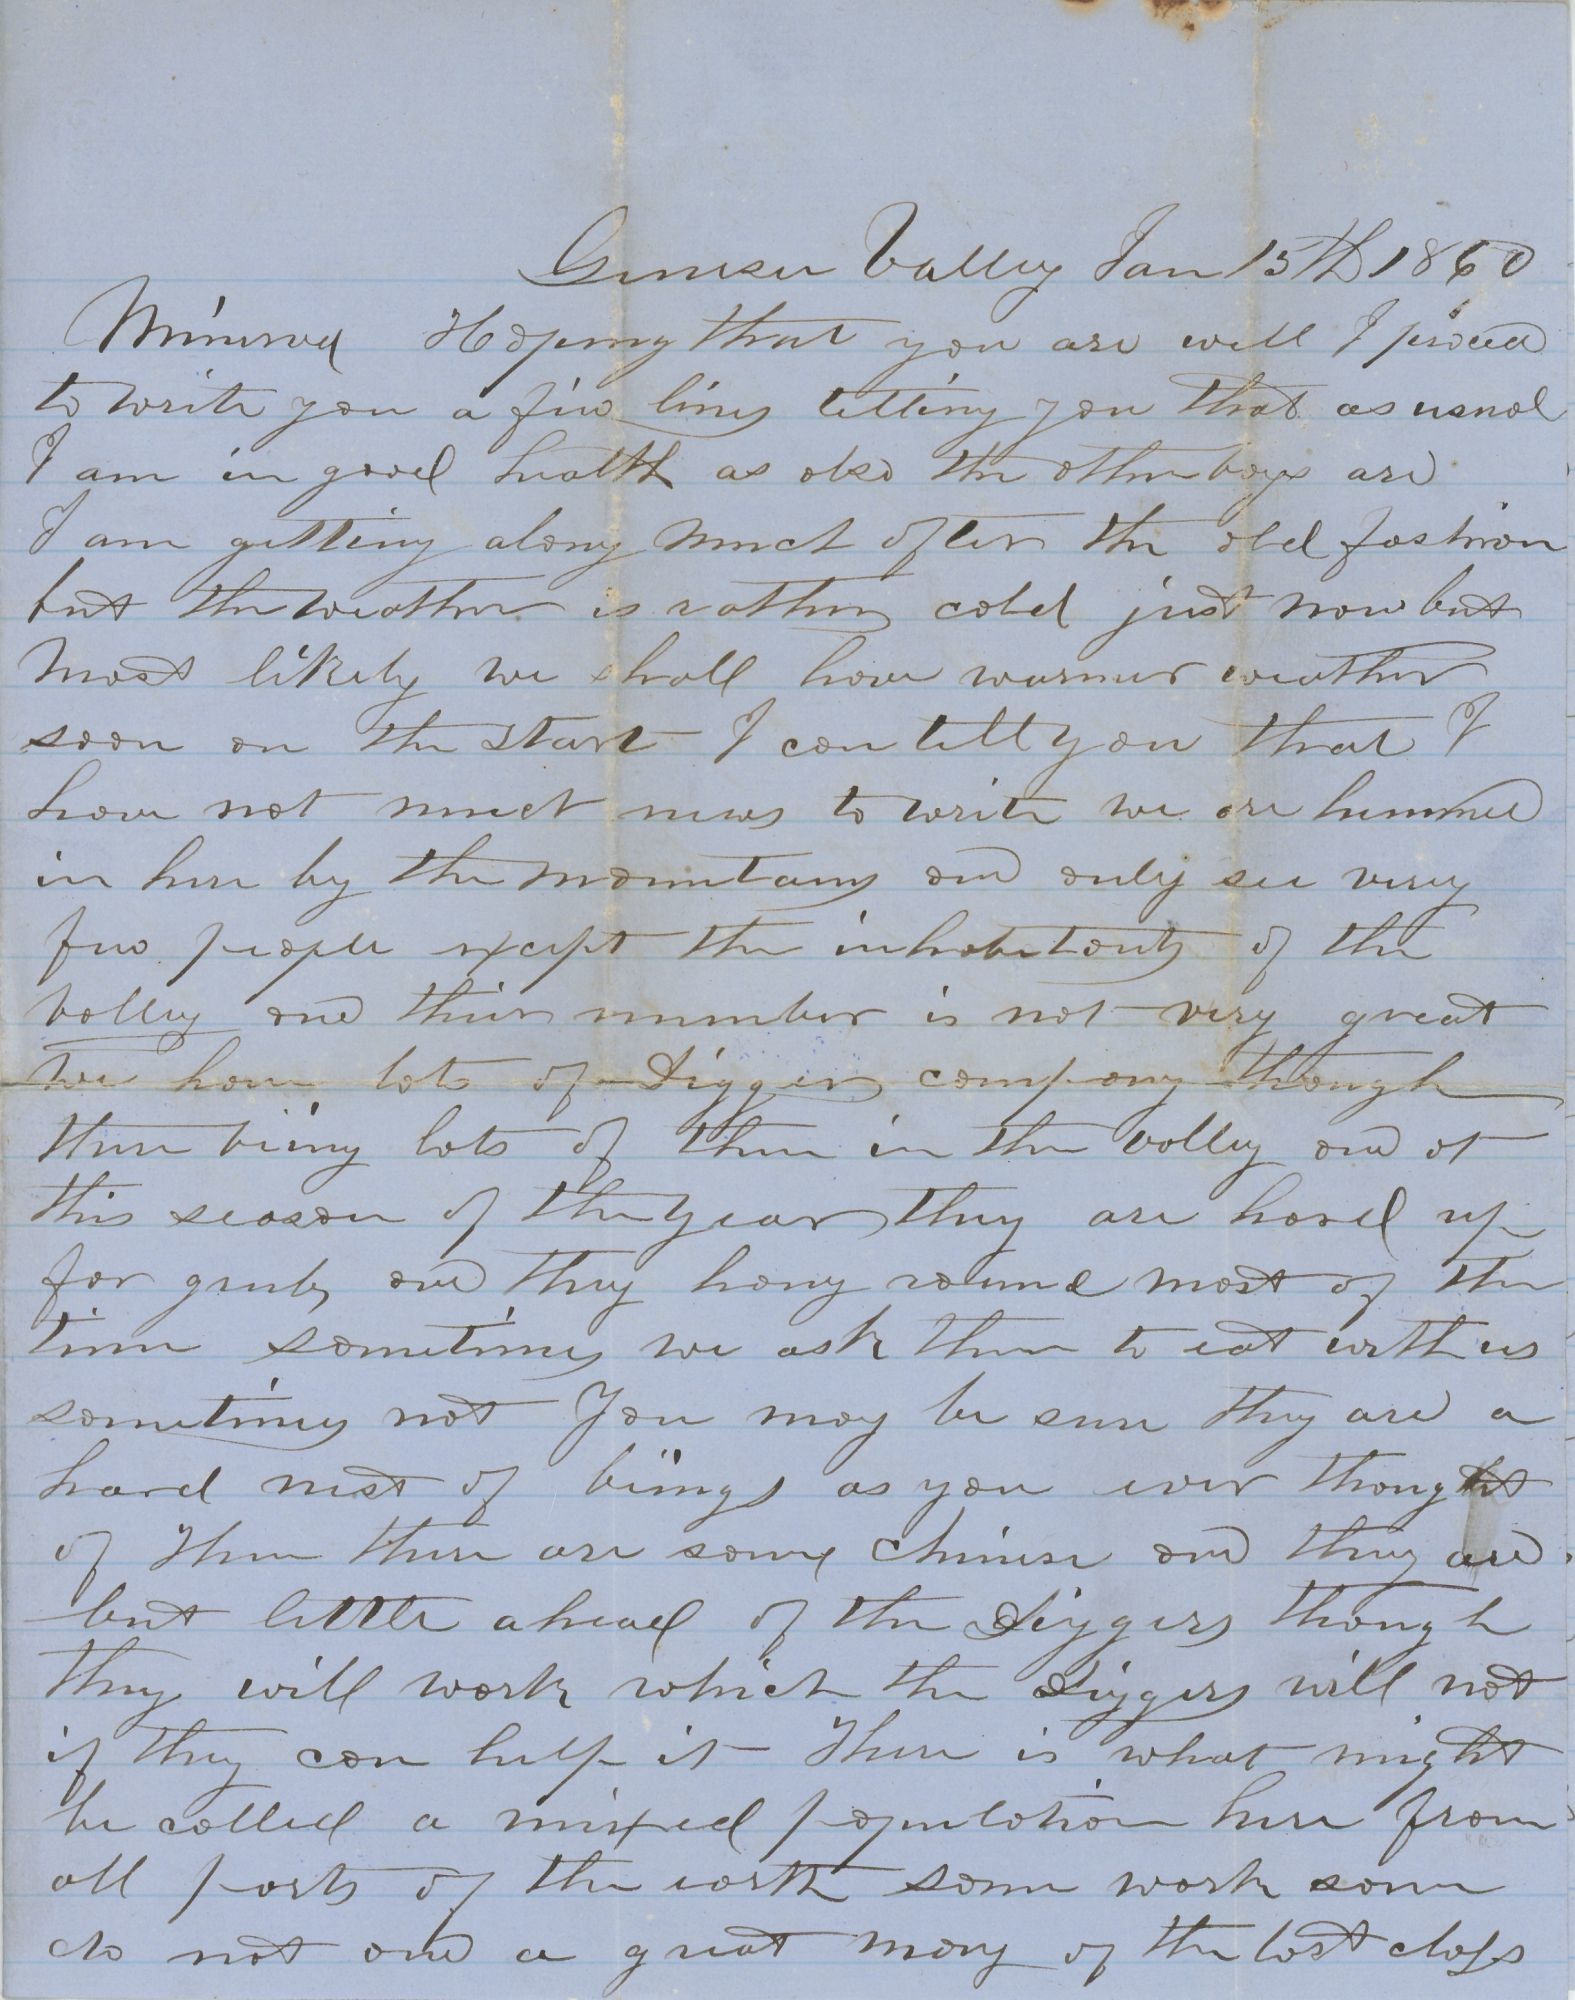 Genesee Valley Jan 15th 1860
Minerva Hoping that you are well I proceed
to write you a few lines letting you that as usual
I am in good health as also the other boys are
I am getting along much after the old fashion
but the weather is rather cold just now but
most likely we shall have warmer weather
soon on the start I can tell you that I
have not much news to write we are hemmed
in here by the mountains and only see very
few people except the inhabitants of the
valley and their number is not very great
we have lots of Digger company though
there being lots of them in the valley and at
this season of the year they are hard up
for grub, and they hang round most of the
time sometimes we ask them to eat with us
sometimes not You may be sure they are a
hard nest of beings as you ever thought
of Then there are some Chinese and they are
but little ahead of the Diggers though
they will work which the Diggers will not
if they can help it There is what might
be called a mixed population here from
all parts of the earth some work some
do not and a great many of the last class